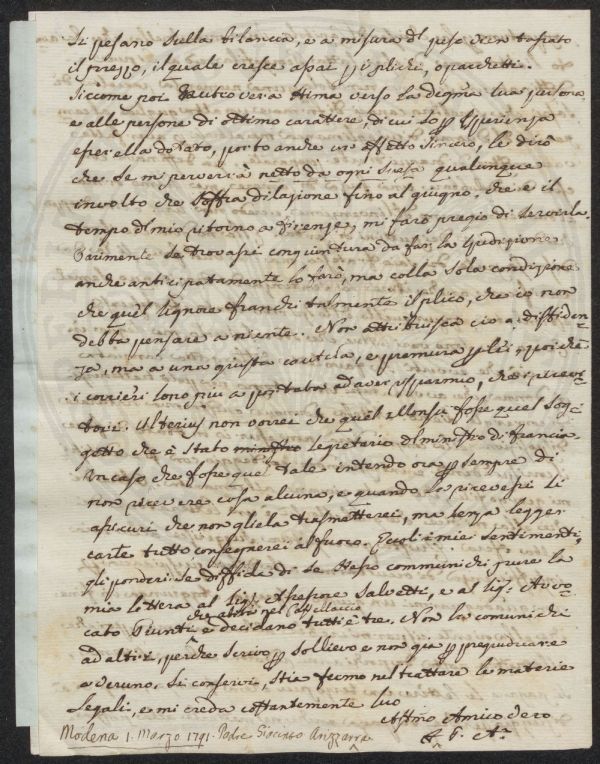 Si pesano sulla bilancia, e a misura del peso vien tassato
il prezzo, il quale cresce assai p i plichi, o pacchetti.
Siccome poi nutro vera stima verso la degma sua persona
e alle persone di ottimo carattere, di cui so p esperienza
esser ella dotato, porto anche un affetto sincero, le dirò
che se mi perverrà netto da ogni spesa qualunque
involto che soffra dilazione fino al giugno. che e il
tempo del mio ritorno a Firenze, mi farò pregio di servirla.
Parimente se trovassi congiuntura da far la spedizione
anche anticipatamente lo farò, ma colla sola condizione
che quel signore franchi talmente il plico, che io non
debba pensare a niente. Non attribuisca ciò a diffiden-
za, ma a una giusta cautela, e premura p lei, poichè
i corrieri sono piu a portata ad aver risparmio, che i
tori. Ulterius non vorrei che quel Monsù fosse quel sog-
getto che è stato segretario del ministro di Francia
In caso che fosse quel tale intendo ora p sempre di
non ricevere cosa alcuna, e quando la ricevessi li
assicuri che non gliela trasmetterei, ma senza legger
carte tutto consegnerei al fuoco. Quali i miei sentimenti,
gli ponderi. Se diffida di se stesso communichi pure la
mia lettera al Sig. Assessore Salvetti, e al Sig. Avvo-
cato Giunti e decidano tutti e tre. Non la comunichi
ad altri, perche scrivo p sollievo e non già p pregiudicare
a veruno. Si conservi, stia fermo nel trattare le materie
legali, e mi creda costantemente suo
Affmo Amico vero
Modena 1. Marzo 1791. Padre Giacinto